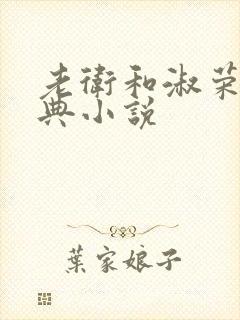 老衛和淑荣
典小説
葉家娘子